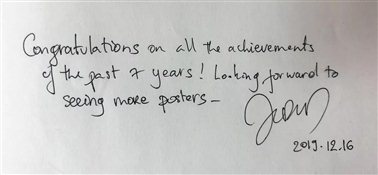 Congratulations on all the achievements
of the past 7 years! Looking forward to
seeing more posters –
2019.12.16